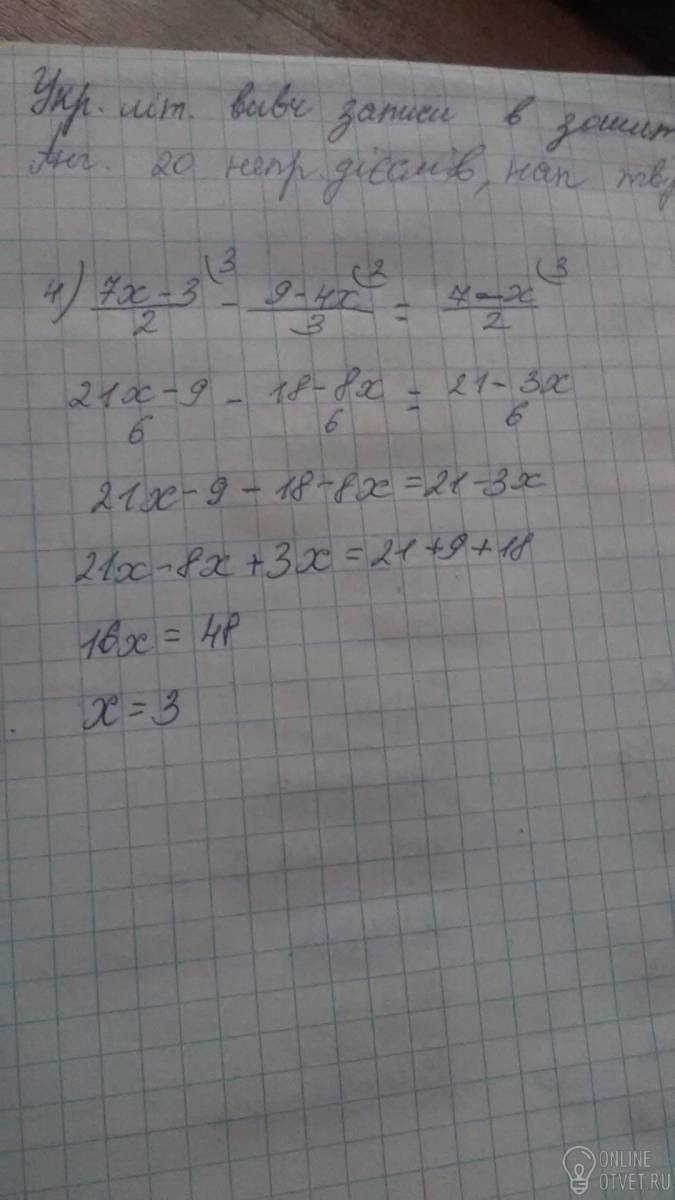 Укр. літ. вивч записи в зошит
Анг. 20 непр. дієслів, нап тв
4) (7x-3)/2 (3 - (9-4x)/3 (2 = (7-x)/2 (3
(21x-9)/6 - (18-8x)/6 = (21-3x)/6
21x-9-18-8x=21-3x
21x-8x+3x=21+9+18
16x=48
x=3
ONLINE
OTVET.RU